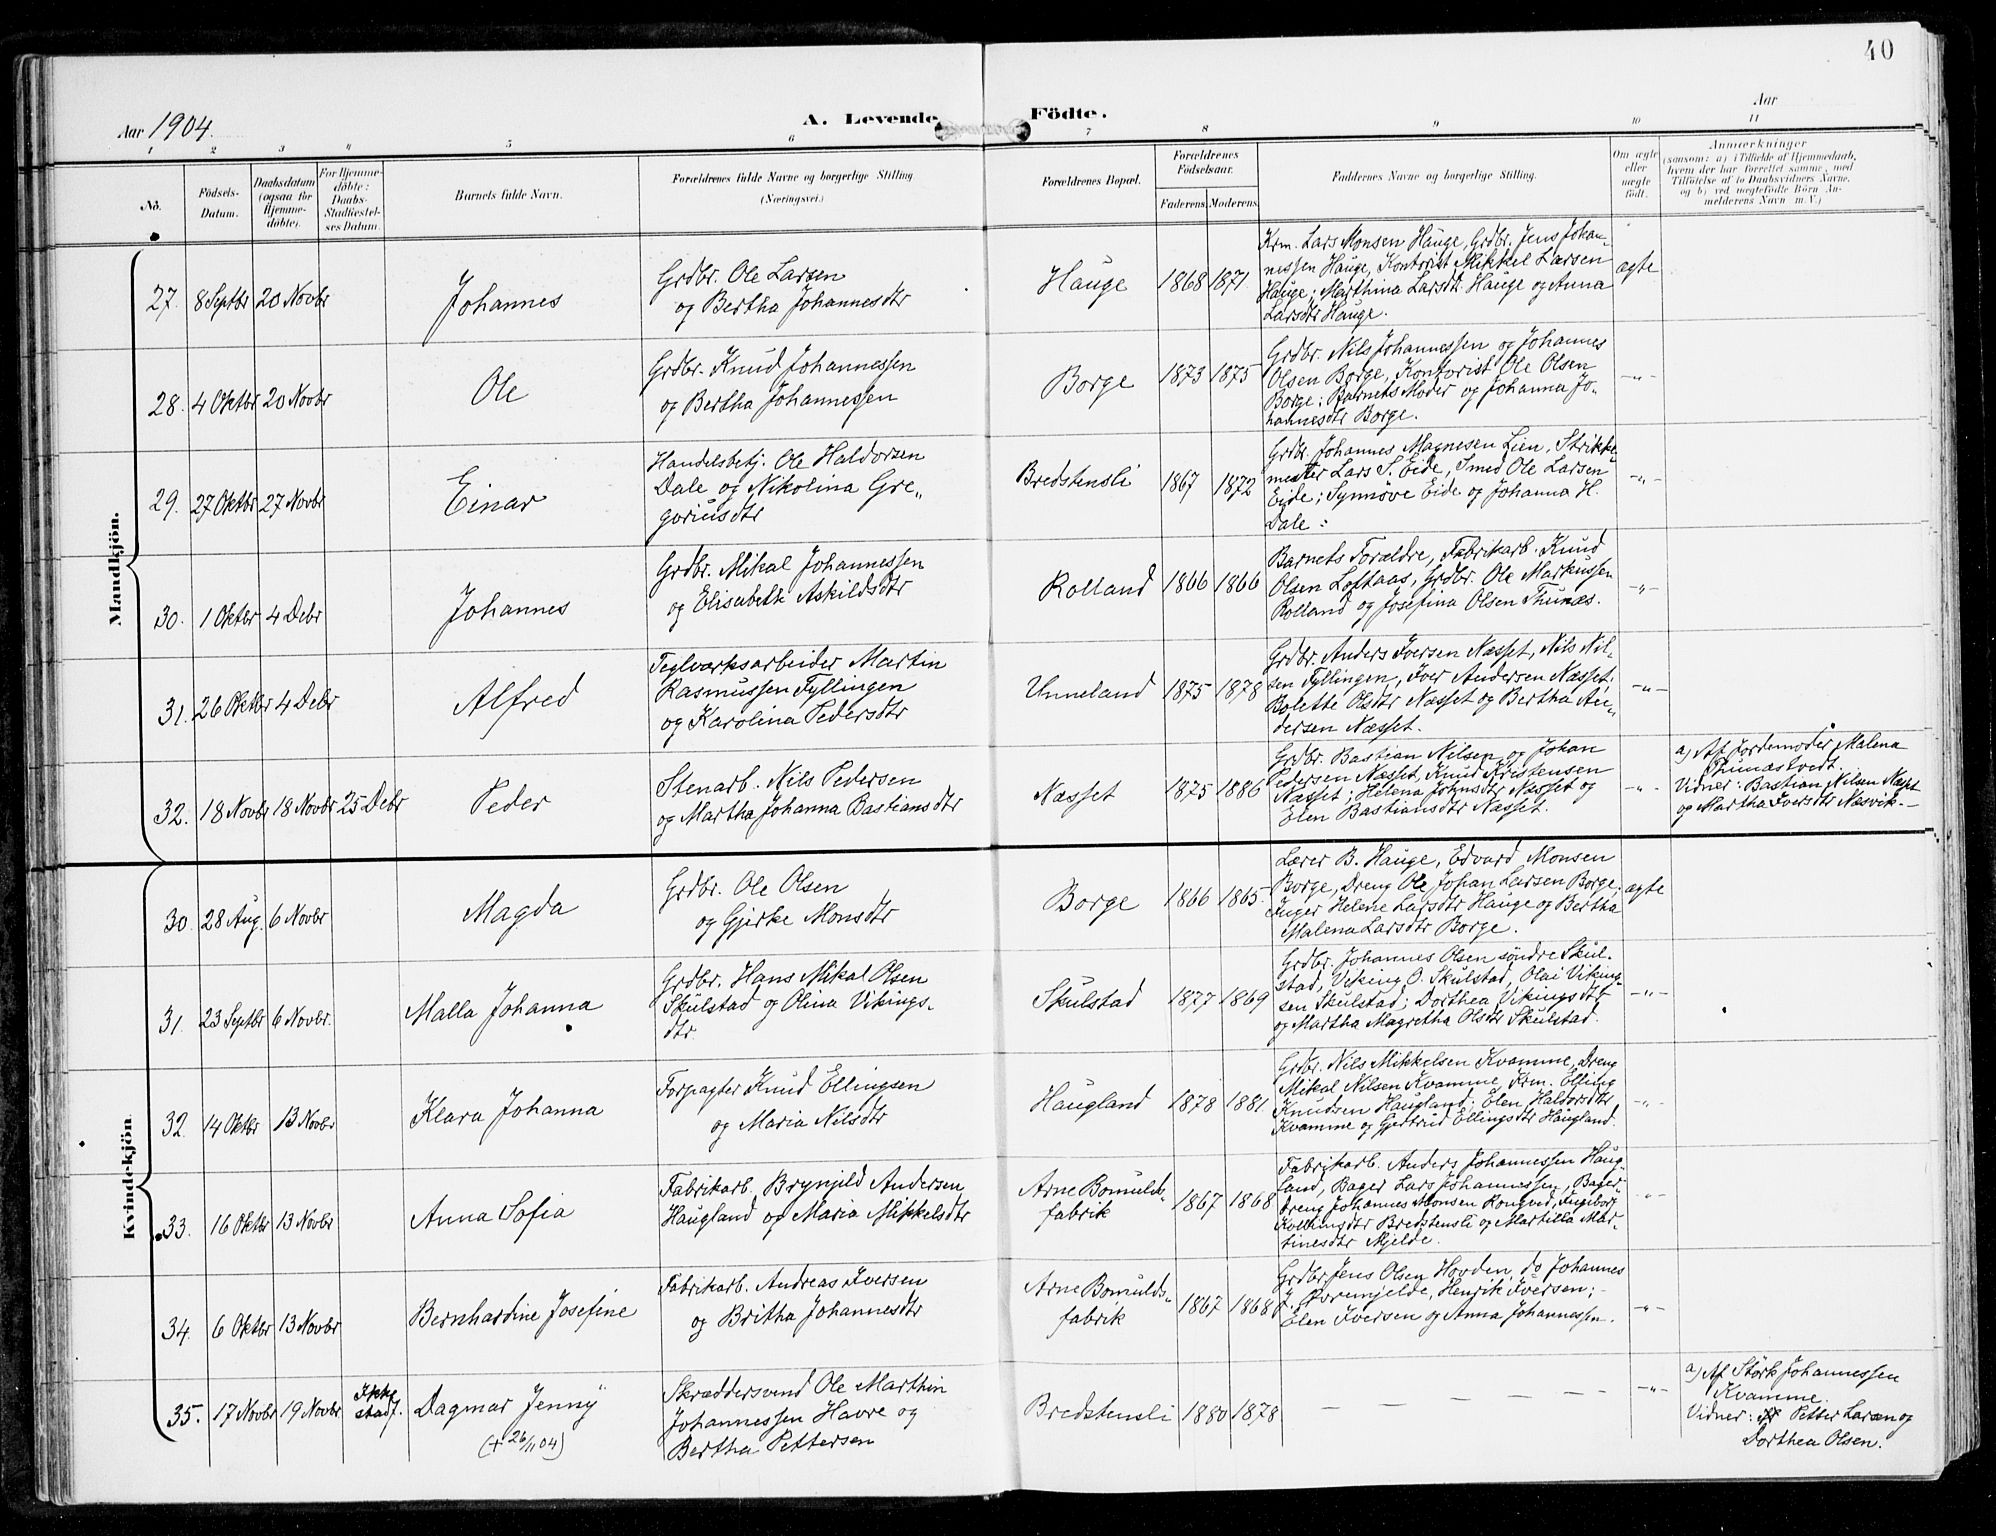 40
Aar 1904.
A. Levende
Födte.
Aar
1 2 3 4 5 6 7 8 9 10 11
No.
Födsels-
Datum.
Daabsdatum
(ogsaa for
Hjemme-
døbte).
For Hjemme-
døbte:
Daabs-
Stadfæstel-
ses Datum.
Barnets fulde Navn.
Forældrenes fulde Navne og borgerlige Stilling
(Næringsvei.)
Forældrenes Bopæl.
Forældrenes
Fødselsaar.
Faderens. Moderens.
Faddernes Navne og borgerlige Stilling.
Om ægte
eller
uægte
født.
Anmærkninger
(saasom: a) i Tilfælde af Hjemmedaab,
hvem der har forrettet samme, med
Tilføielse af to Daabsvidners Navne,
og b) ved uegtefødte Børn An-
melderens Navn m. V.)
Mandkjön.
27. 8 Septbr 20 Novbr
Johannes
Grdbr. Ole Larsen
og Bertha Johannesdtr
Hauge 1868 1871
Krm. Lars Monsen Hauge, Grdbr. Jens Johan-
nessen Hauge, Kontorist Mikkel Larsen
Hauge; Marthina Larsdtr Hauge og Anna
Larsdtr Hauge.
ægte
28. 4 Oktbr 20 Novbr
Ole
Grdbr. Knud Johannessen
og Bertha Johannessen
Borge 1873 1875
Grdbr. Nils Johannessen og Johannes
Olsen Borge, Kontorist Ole Olsen
Borge; Barnets Moder og Johanna Jo-
hannesdtr Borge.
-"-
29. 27 Oktbr 27 Novbr
Einar
Handelsbetj. Ole Haldorsen
Dale og Nikolina Gre-
goriusdtr
Bredstensli 1867 1872
Grdbr. Johannes Magnesen Lien, Strikke-
mester Lars S. Eide, Smed Ole Larsen
Eide; Synnöve Eide og Johanna H.
Dale:
-"-
30. 1 Oktbr 4 Debr
Johannes
Grdbr. Mikal Johannessen
og Elisabeth Askildsdtr
Rolland 1866 1866
Barnets Forældre, Fabrikarb. Knud
Olsen Loftaas, Grdbr. Ole Markussen
Rolland og Josefina Olsen Thunæs.
-"-
31. 26 Oktbr 4 Debr
Alfred
Teglværksarbeider Martin
Rasmussen Fyllingen
og Karolina Pedersdtr
Unneland 1875 1878
Grdbr. Anders Iversen Næsset, Nils Nil-
sen Fyllingen, Iver Andersen Næsset;
Bolette Olsdtr Næsset og Bertha An-
dersen Næsset.
-"-
32. 18 Novbr 18 Novbr 25 Debr
Peder
Stenarb. Nils Pedersen
og Martha Johanna Bastiansdtr
Næsset 1875 1886
Grdbr. Bastian Nilsen og Johan
Pedersen Næsset, Knud Kristensen
Næsset; Helena Johnsdtr Næsset og
Elen Bastiansdtr Næsset.
-"-
a) Af Jordemoder Malena
Thunæstvedt.
Vidner: Bastian Nilsen Næsset
og Martha Iversdtr Næsvik.-
Kvindekjön
30. 28 Aug. 6 Novbr
Magda
Grdbr. Ole Olsen
og Gjerke Monsdtr
Borge 1866 1865
Lærer B. Hauge, Edvard Monsen
Borge, Dreng Ole Johan Larsen Borge;
Inger Helene Larsdtr Hauge og Bertha
Malena Larsdtr Borge.
ægte
31. 23 Septbr 6 Novbr.
Malla Johanna
Grdbr. Hans Mikal Olsen
Skulstad og Olina Vikings-
dtr.
Skulstad 1877 1869
Grdbr. Johannes Olsen søndre Skul-
stad, Viking O. Skulstad, Olai Viking-
sen Skulstad; Dorthea Vikingsdtr
og Martha Magretha Olsdtr Skulstad.
-"-
32. 14 Oktbr 13 Novbr
Klara Johanna
Forpagter Knud Ellingsen
og Maria Nilsdtr
Haugland 1878 1881
Grdbr. Nils Mikkelsen Kvamme, Dreng
Mikal Nilsen Kvamme, Krm. Elling
Knudsen Haugland; Elen Haldorsdtr
Kvamme og Gjertrud Ellingsdtr Haugland.
-"-
33. 16 Oktbr 13 Novbr
Anna Sofia
Fabrikarb. Brynjeld Andersen
Haugland og Maria Mikkelsdtr
Arne Bomulds-
fabrik 1867 1868
Fabrikarb. Anders Johannessen Haug-
land, Bager Lars Johannessen, Bager-
dreng Johannes Monsen Rongved, Ingeborg
Bredstensli og Martilla Mar-
tinesdtr Mjelde.
-"-
34. 6 Oktbr 13 Novbr
Bernhardine Josefine
Fabrikarb. Andreas Iversen
og Britha Johannesdtr
Arne Bomulds-
fabrik 1867 1868
Grdbr. Jens Olsen Hovden, do Johannes
J. Övremjelde, Henrik Iversen;-
Elen Iversen og Anna Johannessen.
-"-
35. 17 Novbr 19 Novbr Ikke
stadf.
Dagmar Jenny
(+ 26/11 04)
Skræddersvend Ole Marthin
Johannessen Havre og
Bertha Pettersen
Bredstensli 1880 1878
- - - - -
-"-
a) Af Störk Johannessen
Kvamme.
Vidner: Petter Larsen og
Dorthea Olsen.